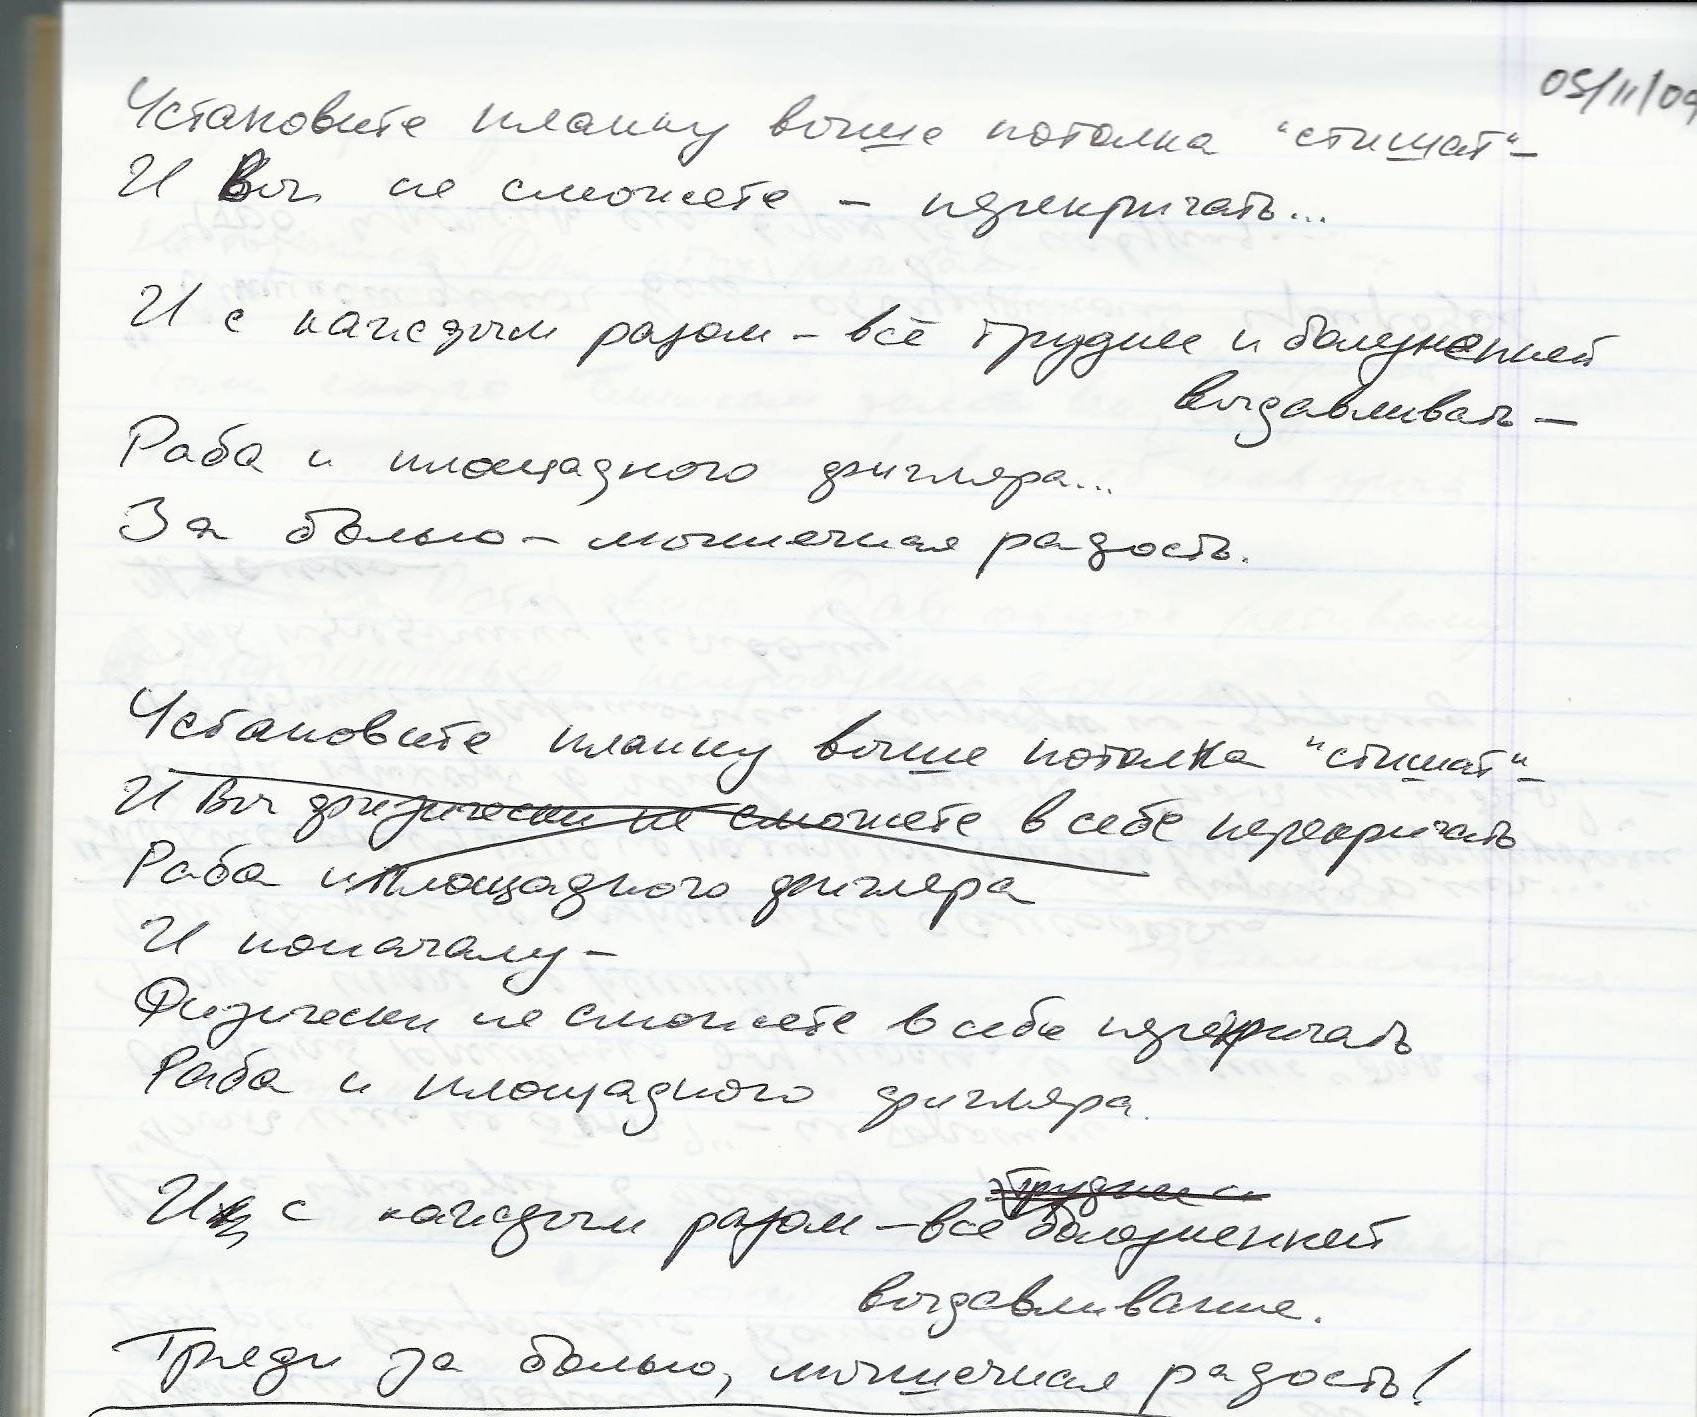 05/11/09
Установите планку выше потолка "стишат" –
И Вы не сможете – перекричать...
И с каждым разом – всё трудней и болезненней
выдавливать –
Раба и площадного фигляра...
За болью – мышечная радость.
Установите планку выше потолка "стишат" –
И Вы физически не сможете в себе перекричать
Раба и площадного фигляра
И поначалу –
Физически не сможете в себе перекричать
Раба и площадного фигляра.
трудней и
И с каждым разом – всё болезненней
выдавливание.
Гряди за болью, мышечная радость!